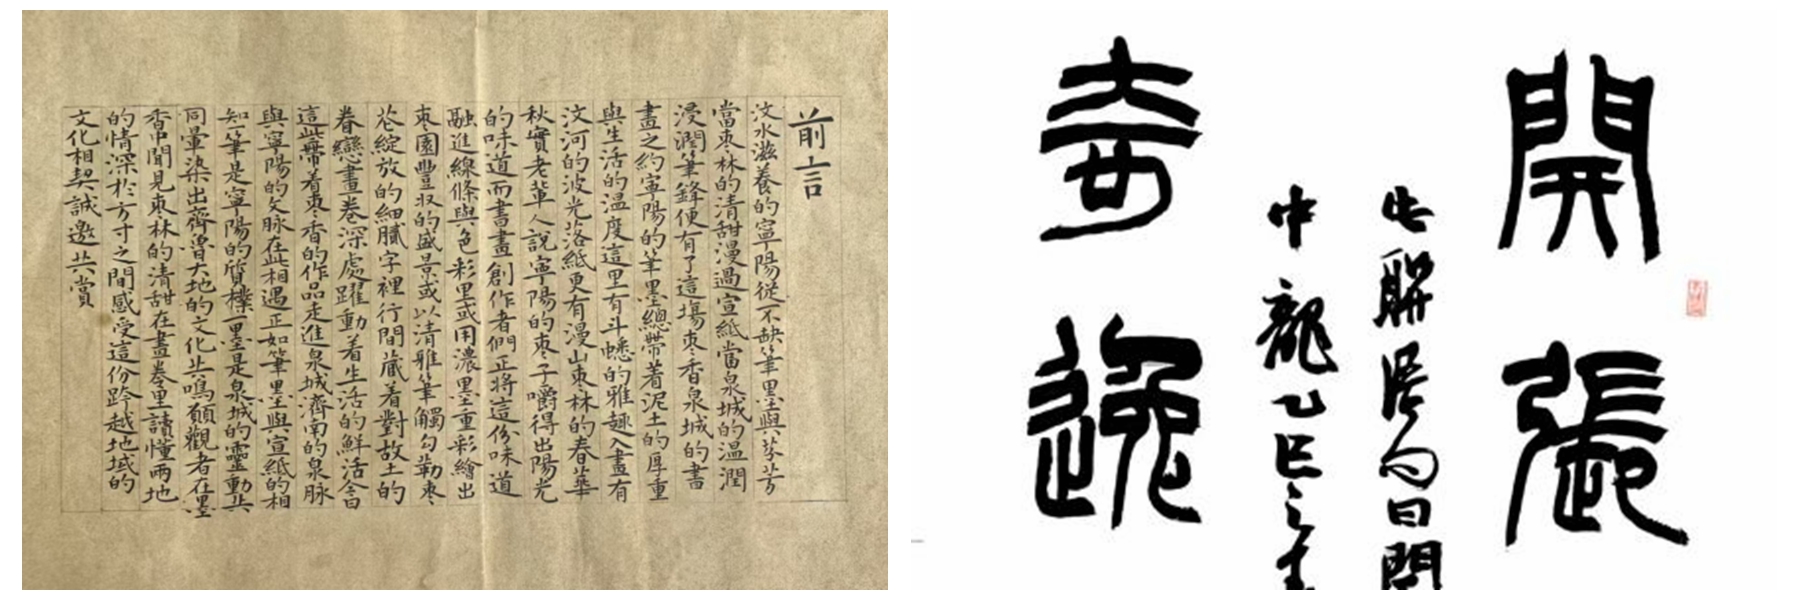 前言
汶水滋養的寧陽從不缺筆墨與芬芳
當枣林的清甜漫過宣紙當泉城的温潤
浸潤筆鋒便有了這場枣香泉城的書
畫之約寧陽的筆墨總帶著泥土的厚重
與生活的温度這里有斗蟋的雅趣入畫有
汶河的波光落紙更有漫山枣林的春華
秋實老輩人說寧陽的枣子嚼得出陽光
的味道而書畫創作者們正将這份味道
融進線條與色彩里或用濃墨重彩繪出
枣園豐收的盛景或以清雅筆觸勾勒枣
花綻放的細膩字裡行間藏着對故土的
眷戀畫卷深處躍動着生活的鮮活會
這些帶着枣香的作品走進泉城濟南的泉脉
與寧陽的文脉在此相遇正如筆墨與宣紙的相
知一筆是寧陽的質樸一墨是泉城的靈動共
同暈染出齊魯大地的文化共鳴願觀者在墨
香中聞見枣林的清甜在畫卷里讀懂兩地
的情深於方寸之間感受這份跨越地域的
文化相契誠邀共賞
開張
奇逸
中龍乙巳之